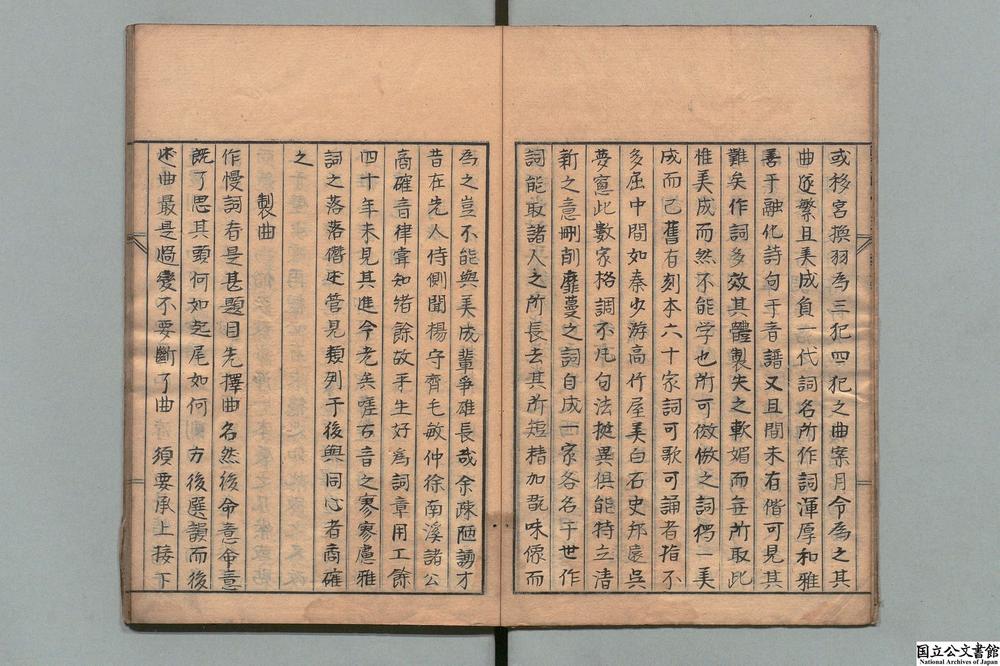 或移宮換羽為三犯四犯之曲案月令為之其
曲遂繁且美成負一代詞名所作詞渾厚和雅
善于融化詩句于音譜又且間未有偕可見其
難矣作詞多效其體製失之軟媚而無所取此
惟美成而然不能学也所可倣傚之詞豈一美
成而已舊有刻本六十家詞可歌可誦者指不
多屈中間如秦少游高竹屋姜白石史邦卿吳
夢窻此數家格調不凡句法挺異俱能特立清
新之意刪削靡蔓之詞自成一家各名于世作
詞能取諸人之所長去其所短精加翫味像而
為之豈不能與美成輩爭雄長哉余疎陋謭才
昔在先人侍側聞楊守齊毛敏仲徐南溪諸公
商確音律嘗知緒餘故平生好為詞章用工餘
四十年未見其進今老矣嗟古音之寥寥慮雅
詞之落落僭述管見類列于後與同心者商確
之
製曲
作慢詞看是甚題目先擇曲名然後命意命意
既了思其頭何如起尾如何結方後選韻而後
述曲最是過變不要斷了曲 須要承上接下
国立公文書館
National Archives of Japan